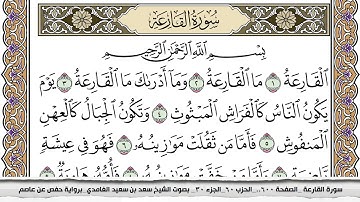 سُورَةُ القَارِعَةِ
بِسْمِ اللَّهِ الرَّحْمَٰنِ الرَّحِيمِ
الْقَارِعَةُ ١ مَا الْقَارِعَةُ ٢ وَمَا أَدْرَىٰكَ مَا الْقَارِعَةُ ٣ يَوْمَ
يَكُونُ النَّاسُ كَالْفَرَاشِ الْمَبْثُوثِ ٤ وَتَكُونُ الْجِبَالُ كَالْعِهْنِ
الْمَنفُوشِ ٥ فَأَمَّا مَن ثَقُلَتْ مَوَٰزِينُهُ ٦ فَهُوَ فِي عِيشَةٍ
سورة القارعة _الصفحة ٦٠٠... الحزب ٦٠_الجزء ٣٠_ بصوت الشيخ سعد بن سعيد الغامدي _برواية حفص عن عاصم